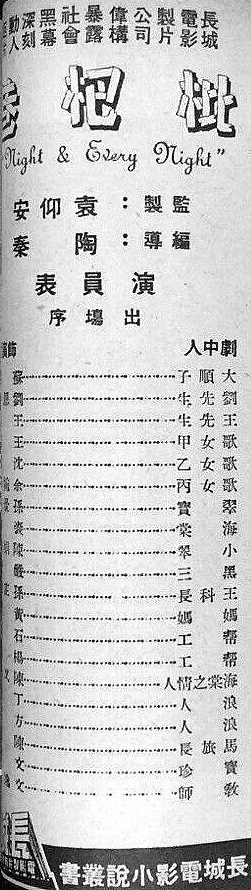 長城電影製片公司偉構暴露社會黑幕深刻動人
枇杷巷
Night & Every Night"
監製：袁仰安
編導：陶秦
演員表
出塲序
劇中人 飾
大順子 蘇
劉先生 劉
王先生 王
歌女甲 王
歌女乙 沈
歌女丙 余
翠寶 孫
海棠 裴
小翠 陳
黑三 嚴
王科長 孫
媽媽 黃
帮工 石
帮工 楊
海棠之情人 陳
浪人 丁
浪人 方
馬旅長 陳
寶珍 文
教師 文
長城電影小說叢書